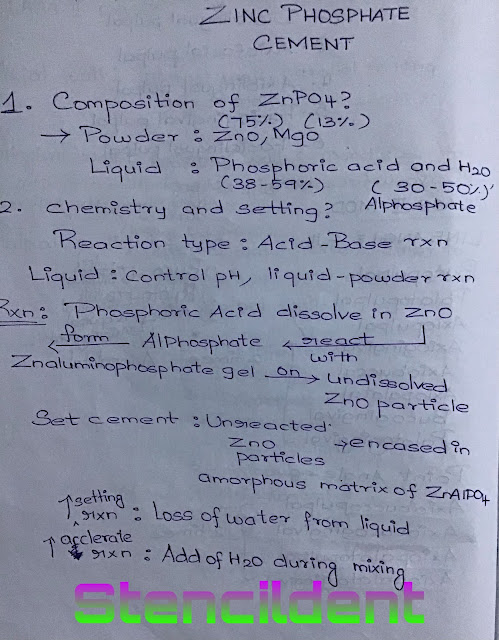 ZINC PHOSPHATE
CEMENT
1. Composition of ZnPO4?
(75%) (13%)
→ Powder : ZnO, MgO
Liquid : Phosphoric acid and H2O
(38-59%) (30-50%)
Alphosphate
2. chemistry and setting?
Reaction type : Acid-Base rxn
Liquid : Control pH, liquid-powder rxn
Rxn : Phosphoric Acid dissolve in ZnO
form ← Alphosphate ← react with
Znaluminophosphate gel on → undissolved
ZnO particle
Set cement : Unreacted
ZnO → encased in
particles
amorphous matrix of ZnAlPO4
↑ setting
rxn : Loss of water from liquid
↑ acclerate
rxn : Add of H2O during mixing
Stencildent